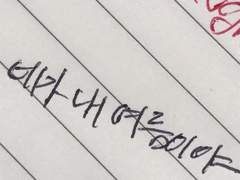 네가 내 여름이야